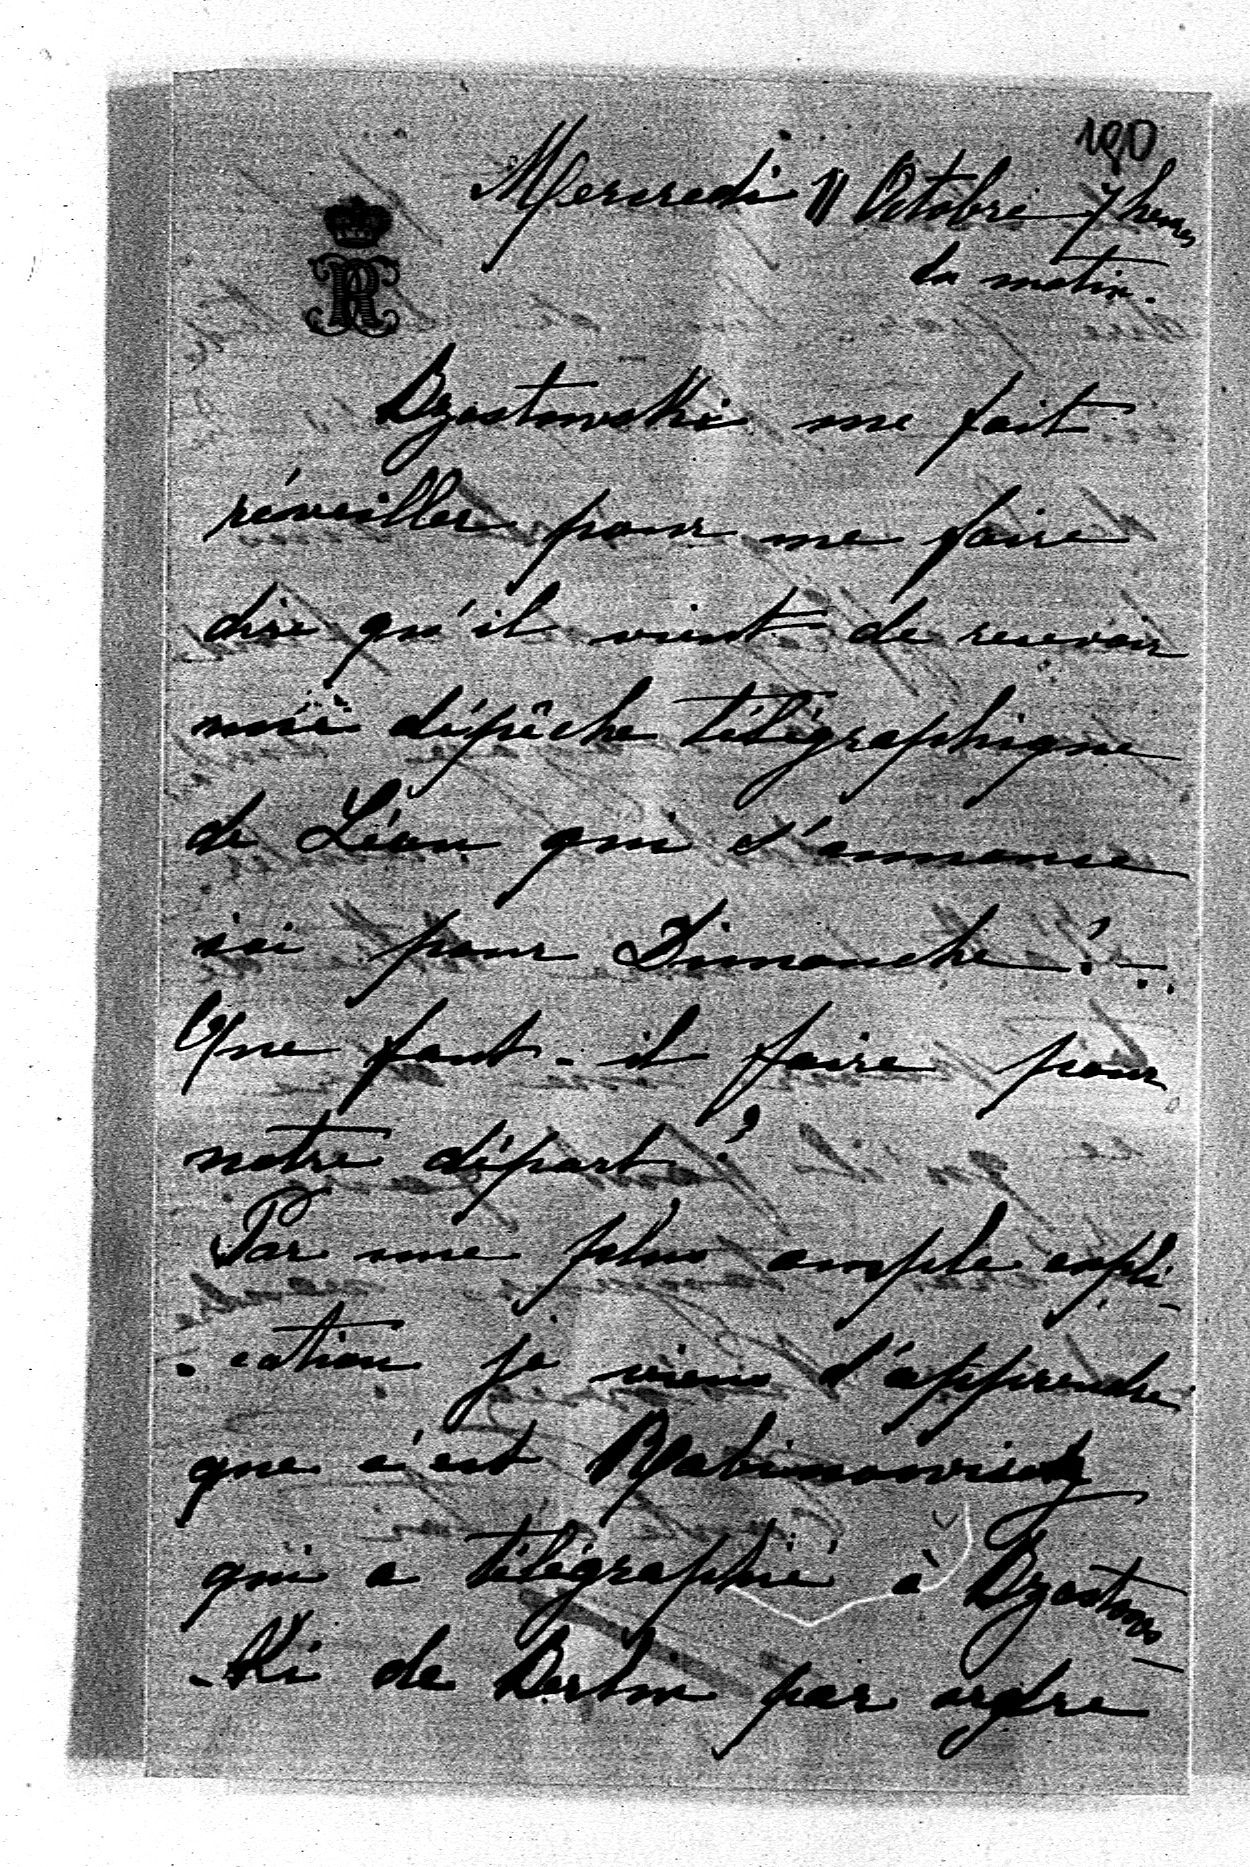 190
Mercredi 11 Octobre 7 heures
du matin.
RR
Bzostowski me fait
réveiller pour me faire
dire qu'il vient de recevoir
une dépêche télégraphique
de Léon qui s'annonce
ici pour Dimanche!..
Que faut-il faire pour
notre départ?
Par une plus ample expli-
-cation je viens d'apprendre
que c'est Rabinowisch
qui a télégraphié à Bzostows-
-ki de Berlin par ordre